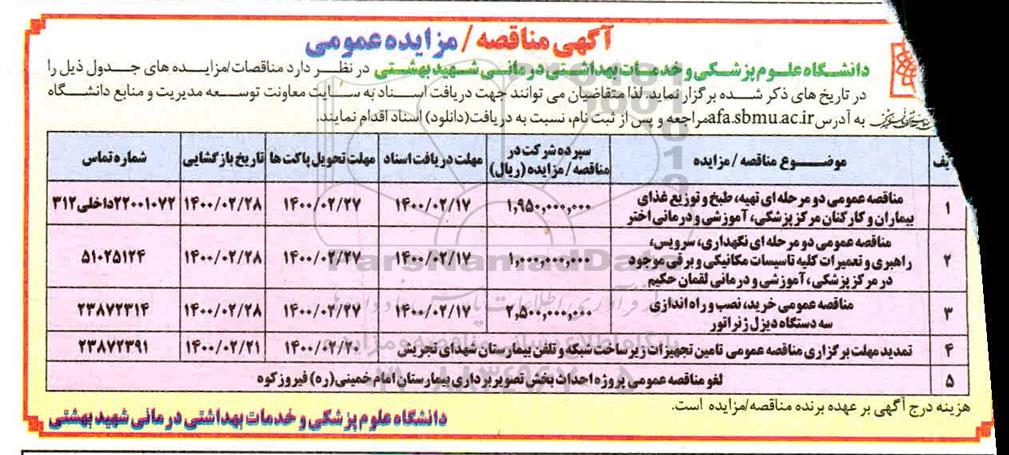 آگهی مناقصه / مزایده عمومی
دانشگاه علوم پزشکی و خدمات بهداشتی درمانی شهید بهشتی در نظر دارد مناقصات/مزایده های جدول ذیل را
در تاریخ های ذکر شده برگزار نماید. لذا متقاضیان می توانند جهت دریافت اسناد به سایت معاونت توسعه مدیریت و منابع دانشگاه
به آدرس afa.sbmu.ac.ir مراجعه و پس از ثبت نام، نسبت به دریافت (دانلود) اسناد اقدام نمایند.
یف موضوع مناقصه / مزایده سپرده شرکت در مناقصه / مزایده (ریال) مهلت دریافت اسناد مهلت تحویل پاکت ها تاریخ بازگشایی شماره تماس
۱ مناقصه عمومی دو مرحله ای تهیه، طبخ و توزیع غذای
بیماران و کارکنان مرکز پزشکی، آموزشی و درمانی اختر ۱,۹۵۰,۰۰۰,۰۰۰ ۱۴۰۰/۰۲/۱۷ ۱۴۰۰/۰۲/۲۷ ۱۴۰۰/۰۲/۲۸ ۲۲۰۰۱۰۷۲ داخلی ۳۱۲
۲ مناقصه عمومی دو مرحله ای نگهداری، سرویس،
راهبری و تعمیرات کلیه تاسیسات مکانیکی و برقی موجود
در مرکز پزشکی، آموزشی و درمانی لقمان حکیم ۱,۰۰۰,۰۰۰,۰۰۰ ۱۴۰۰/۰۲/۱۷ ۱۴۰۰/۰۲/۲۷ ۱۴۰۰/۰۲/۲۸ ۵۱۰۲۵۱۲۴
۳ مناقصه عمومی خرید، نصب و راه اندازی
سه دستگاه دیزل ژنراتور ۲,۵۰۰,۰۰۰,۰۰۰ ۱۴۰۰/۰۲/۱۷ ۱۴۰۰/۰۲/۲۷ ۱۴۰۰/۰۲/۲۸ ۲۳۸۷۲۳۱۴
۴ تمدید مهلت برگزاری مناقصه عمومی تامین تجهیزات زیرساخت شبکه و تلفن بیمارستان شهدای تجریش ۱۴۰۰/۰۲/۲۰ ۱۴۰۰/۰۲/۲۱ ۲۳۸۷۲۳۹۱
۵ لغو مناقصه عمومی پروژه احداث بخش تصویربرداری بیمارستان امام خمینی (ره) فیروزکوه
هزینه درج آگهی بر عهده برنده مناقصه/مزایده است.
دانشگاه علوم پزشکی و خدمات بهداشتی درمانی شهید بهشتی
ParsNamadData